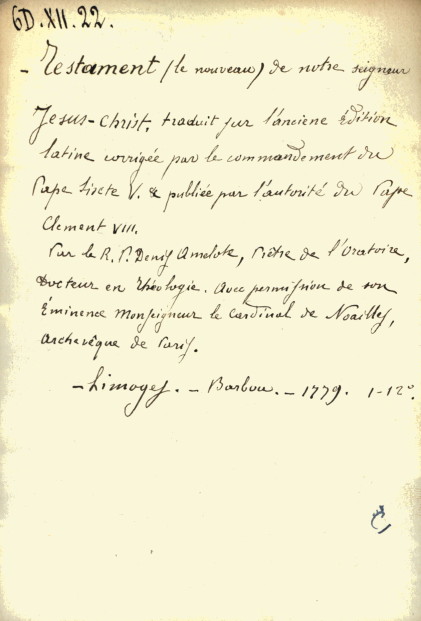 6D.XII.22.
- Testament (le nouveau) de notre seigneur
Jesus-Christ, traduit sur l'anciene Édition
latine corrigée par le commandement du
Pape Sixte V. & publiée par l'autorité du Pape
Clement VIII.
Par le R. P. Denis Amelote, Prêtre de l'Oratoire,
Docteur en théologie. Avec permission de son
Éminence Monseigneur le Cardinal de Noailles,
Archevêque de Paris.
- Limoges. - Barbou. - 1779. 1-12°.